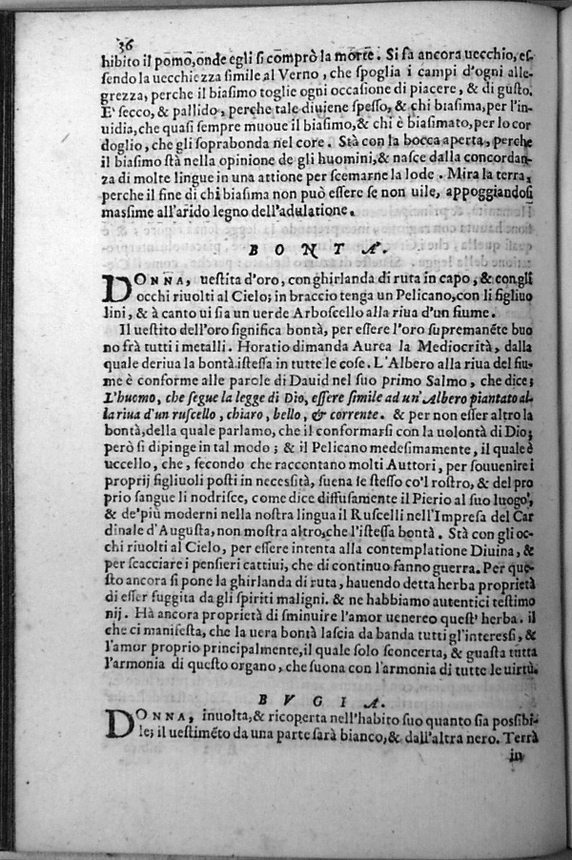 36
hibito il pomo, onde egli si comprò la morte. Si fa ancora uecchio, es-
sendo la uecchiezza simile al Verno, che spoglia i campi d'ogni alle-
grezza, perche il biasimo toglie ogni occasione di piacere, & di gusto.
E' secco, & pallido, perche tale diuiene spesso, & chi biasima, per l'in-
uidia, che quasi sempre muoue il biasimo, & chi è biasimato, per lo cor
doglio, che gli soprabonda nel core. Stà con la bocca aperta, perche
il biasimo stà nella opinione de gli huomini, & nasce dalla concordan-
za di molte lingue in una attione per scemarne la lode. Mira la terra,
perche il fine di chi biasima non può essere se non uile, appoggiandosi
massime all'arido legno dell'adulatione.
BONTA.
DONNA, uestita d'oro, con ghirlanda di ruta in capo, & con gli
occhi riuolti al Cielo; in braccio tenga un Pelicano, con li figliuo
lini, & à canto ui sia un uerde Arboscello alla riua d'un fiume.
Il uestito dell'oro significa bontà, per essere l'oro supremanẽte buo
no frà tutti i metalli. Horatio dimanda Aurea la Mediocrità, dalla
quale deriua la bontà istessa in tutte le cose. L'Albero alla riua del fiu-
me è conforme alle parole di Dauid nel suo primo Salmo, che dice;
L'huomo, che segue la legge di Dio, essere simile ad un' Albero piantato al-
la riua d'un ruscello, chiaro, bello, & corrente. & per non esser altro la
bontà, della quale parlamo, che il conformarsi con la uolontà di Dio;
però si dipinge in tal modo; & il Pelicano medesimamente, il quale è
uccello, che, secondo che raccontano molti Auttori, per souuenire i
proprij figliuoli posti in necessità, suena se stesso co'l rostro, & del pro
prio sangue li nodrisce, come dice diffusamente il Pierio al suo luogo,
& de'più moderni nella nostra lingua il Ruscelli nell'Impresa del Car
dinale d'Augusta, non mostra altro, che l'istessa bontà. Stà con gli oc-
chi riuolti al Cielo, per essere intenta alla contemplatione Diuina, &
per scacciare i pensieri cattiui, che di continuo fanno guerra. Per que-
sto ancora si pone la ghirlanda di ruta, hauendo detta herba proprietà
di esser fuggita da gli spiriti maligni. & ne habbiamo autentici testimo
nij. Hà ancora proprietà di sminuire l'amor uenereo quest' herba. il
che ci manifesta, che la uera bontà lascia da banda tutti gl'interessi, &
l'amor proprio principalmente, il quale solo sconcerta, & guasta tutta
l'armonia di questo organo, che suona con l'armonia di tutte le uirtù.
BVGIA.
DONNA, inuolta, & ricoperta nell'habito suo quanto sia possibi-
le; il uestimẽto da una parte sarà bianco, & dall'altra nero. Terrà
in